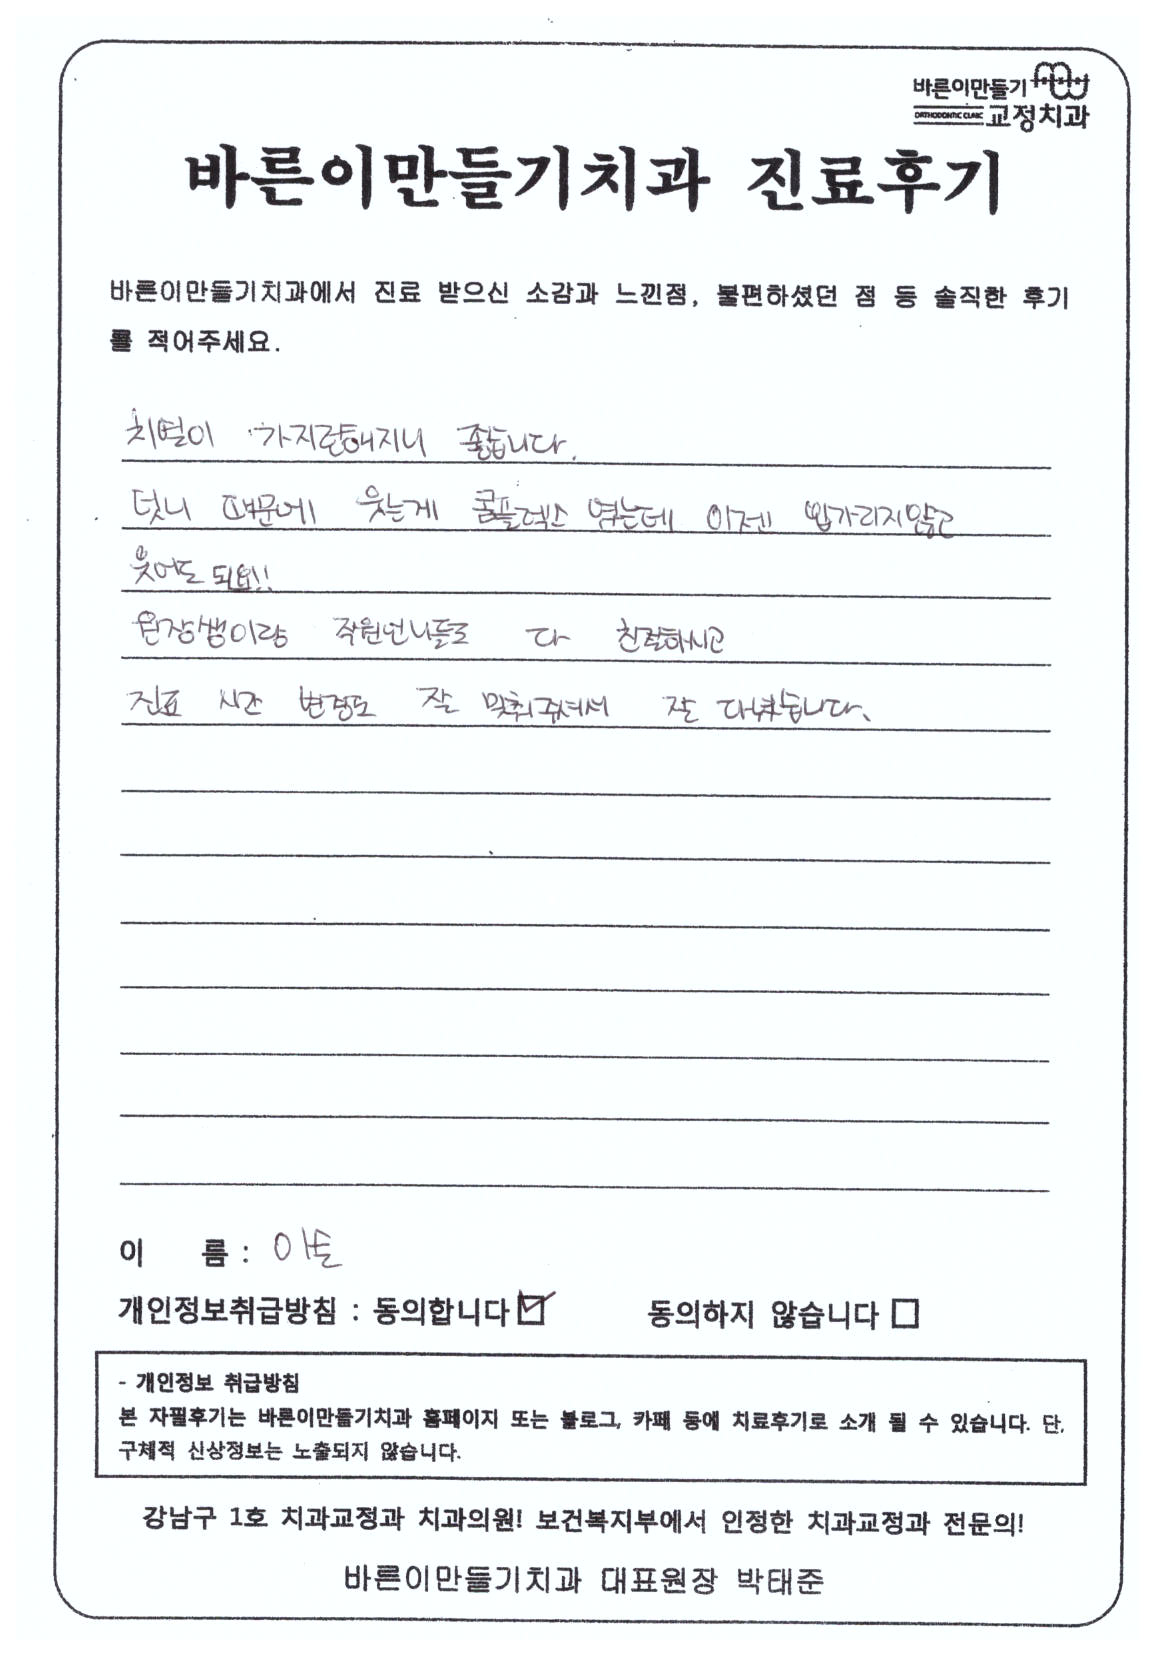 바른이만들기
ORTHODONTIC CLINIC 교정치과
바른이만들기치과 진료후기
바른이만들기치과에서 진료 받으신 소감과 느낀점, 불편하셨던 점 등 솔직한 후기
를 적어주세요.
치열이 가지런해지니 좋습니다.
덧니 때문에 웃는게 콤플렉스 였는데 이젠 입가리지않고
웃어도 되요!!
원장쌤이랑 직원언니들도 다 친절하시고
진료 시간 변경도 잘 맞춰주셔서 잘 다녔습니다.
이 름 :
개인정보취급방침 : 동의합니다 ☑ 동의하지 않습니다 □
- 개인정보 취급방침
본 자필후기는 바른이만들기치과 홈페이지 또는 블로그, 카페 등에 치료후기로 소개 될 수 있습니다. 단,
구체적 신상정보는 노출되지 않습니다.
강남구 1호 치과교정과 치과의원! 보건복지부에서 인정한 치과교정과 전문의!
바른이만들기치과 대표원장 박태준